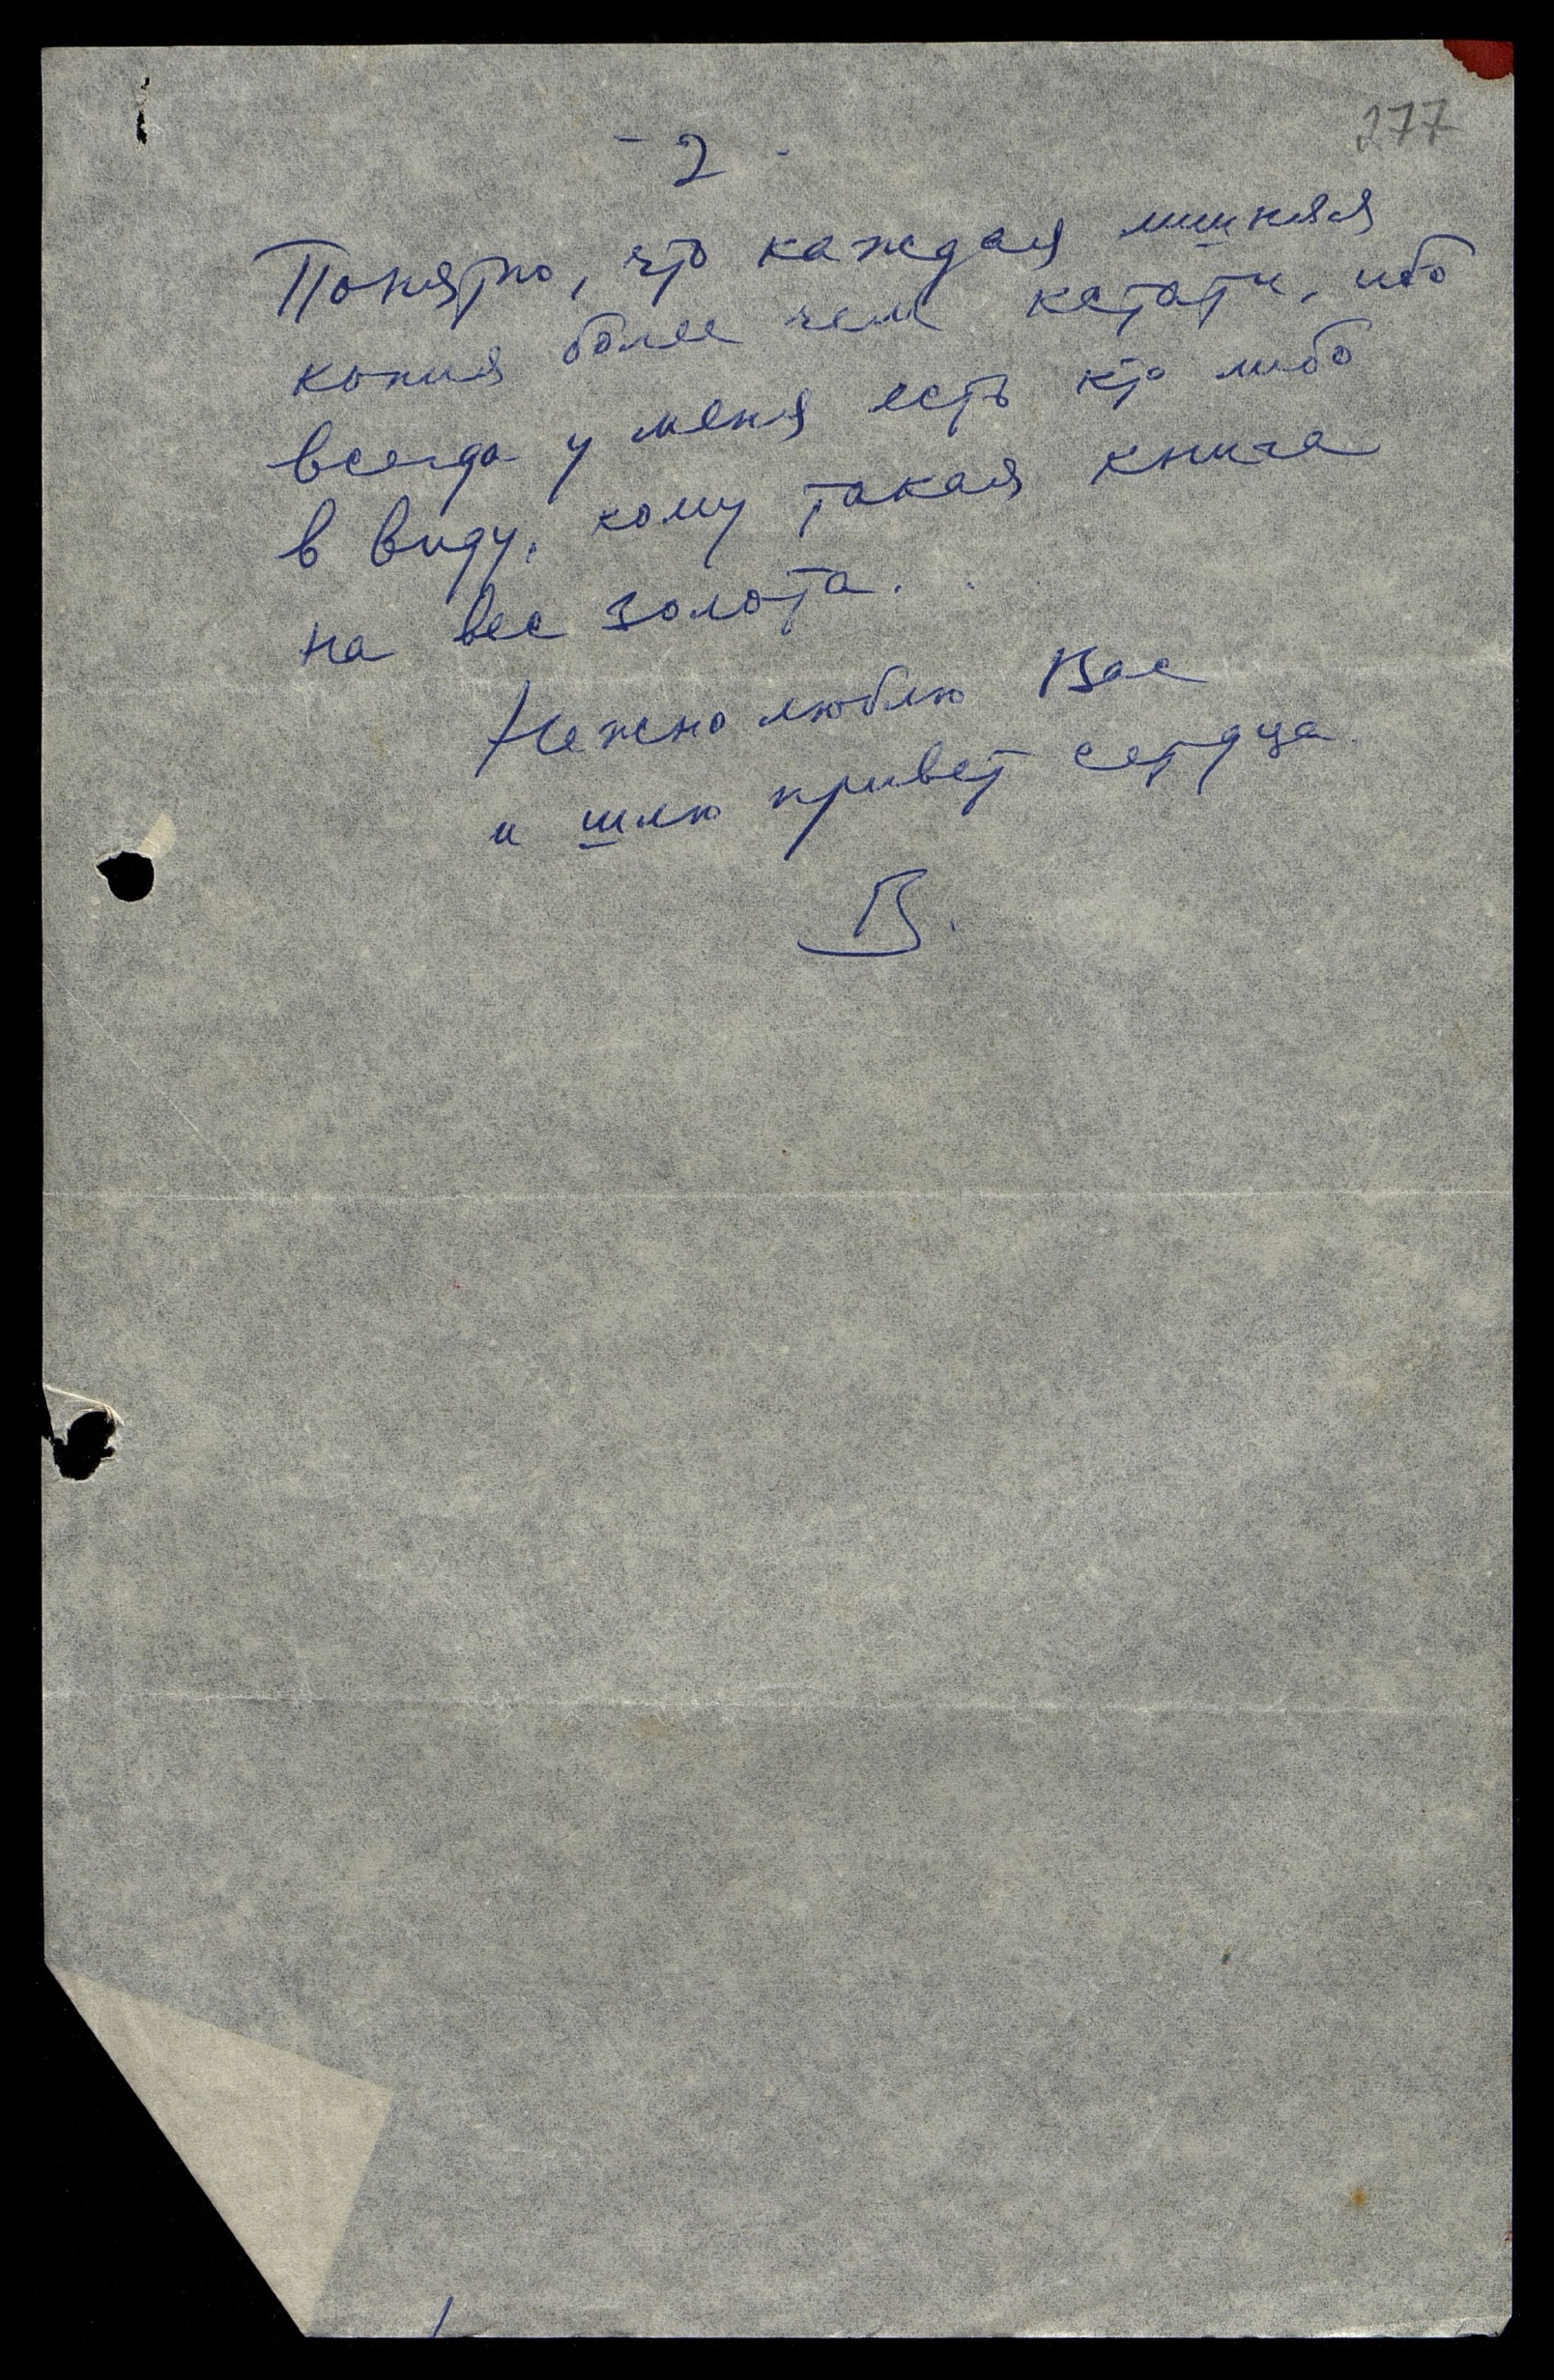 277
- 2 -
Понятно, что каждая лишняя
копия более чем кстати, ибо
всегда у меня есть кто либо
в виду, кому такая книга
на вес золота.
Нежно люблю Вас
и шлю привет сердца.
В.